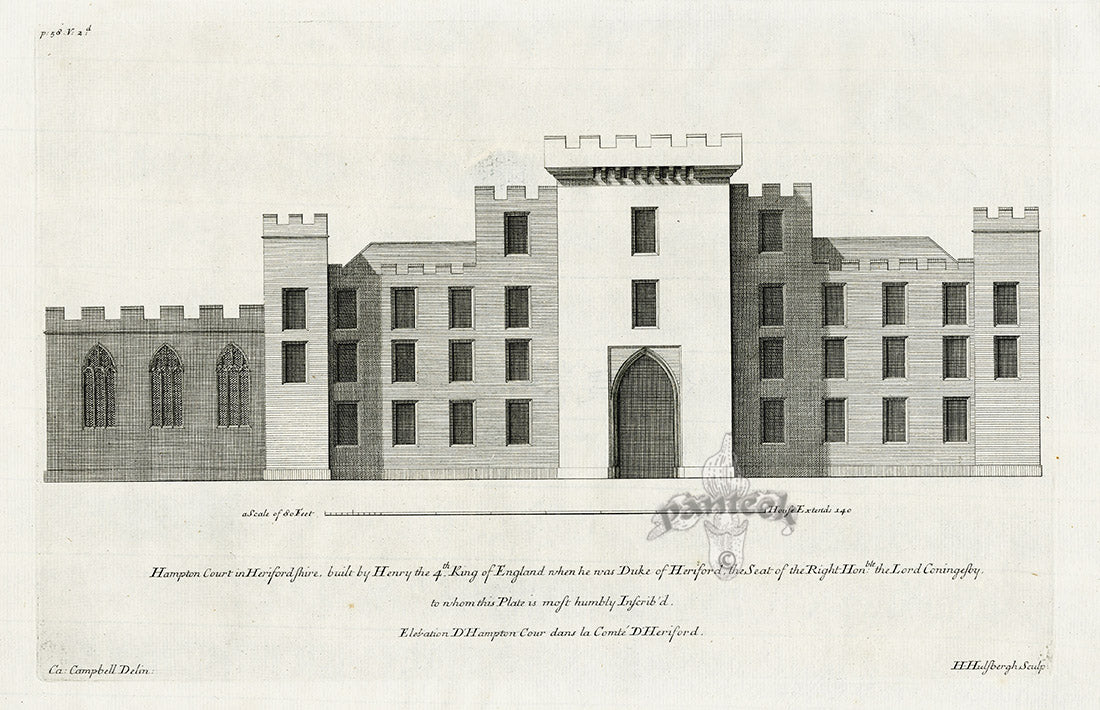 p: 58 V: 2.d
a Scale of 80 Feet
House Extends 140
panteek
©
Hampton Court in Herifordſhire, built by Henry the 4.th King of England when he was Duke of Heriford, the Seat of the Right Hon.ble the Lord Coningeſby.
to whom this Plate is moſt humbly Inſcrib'd.
Elevation D'Hampton Cour dans la Comté D'Heriford.
Ca: Campbell Delin:
H. Hulſbergh Sculp